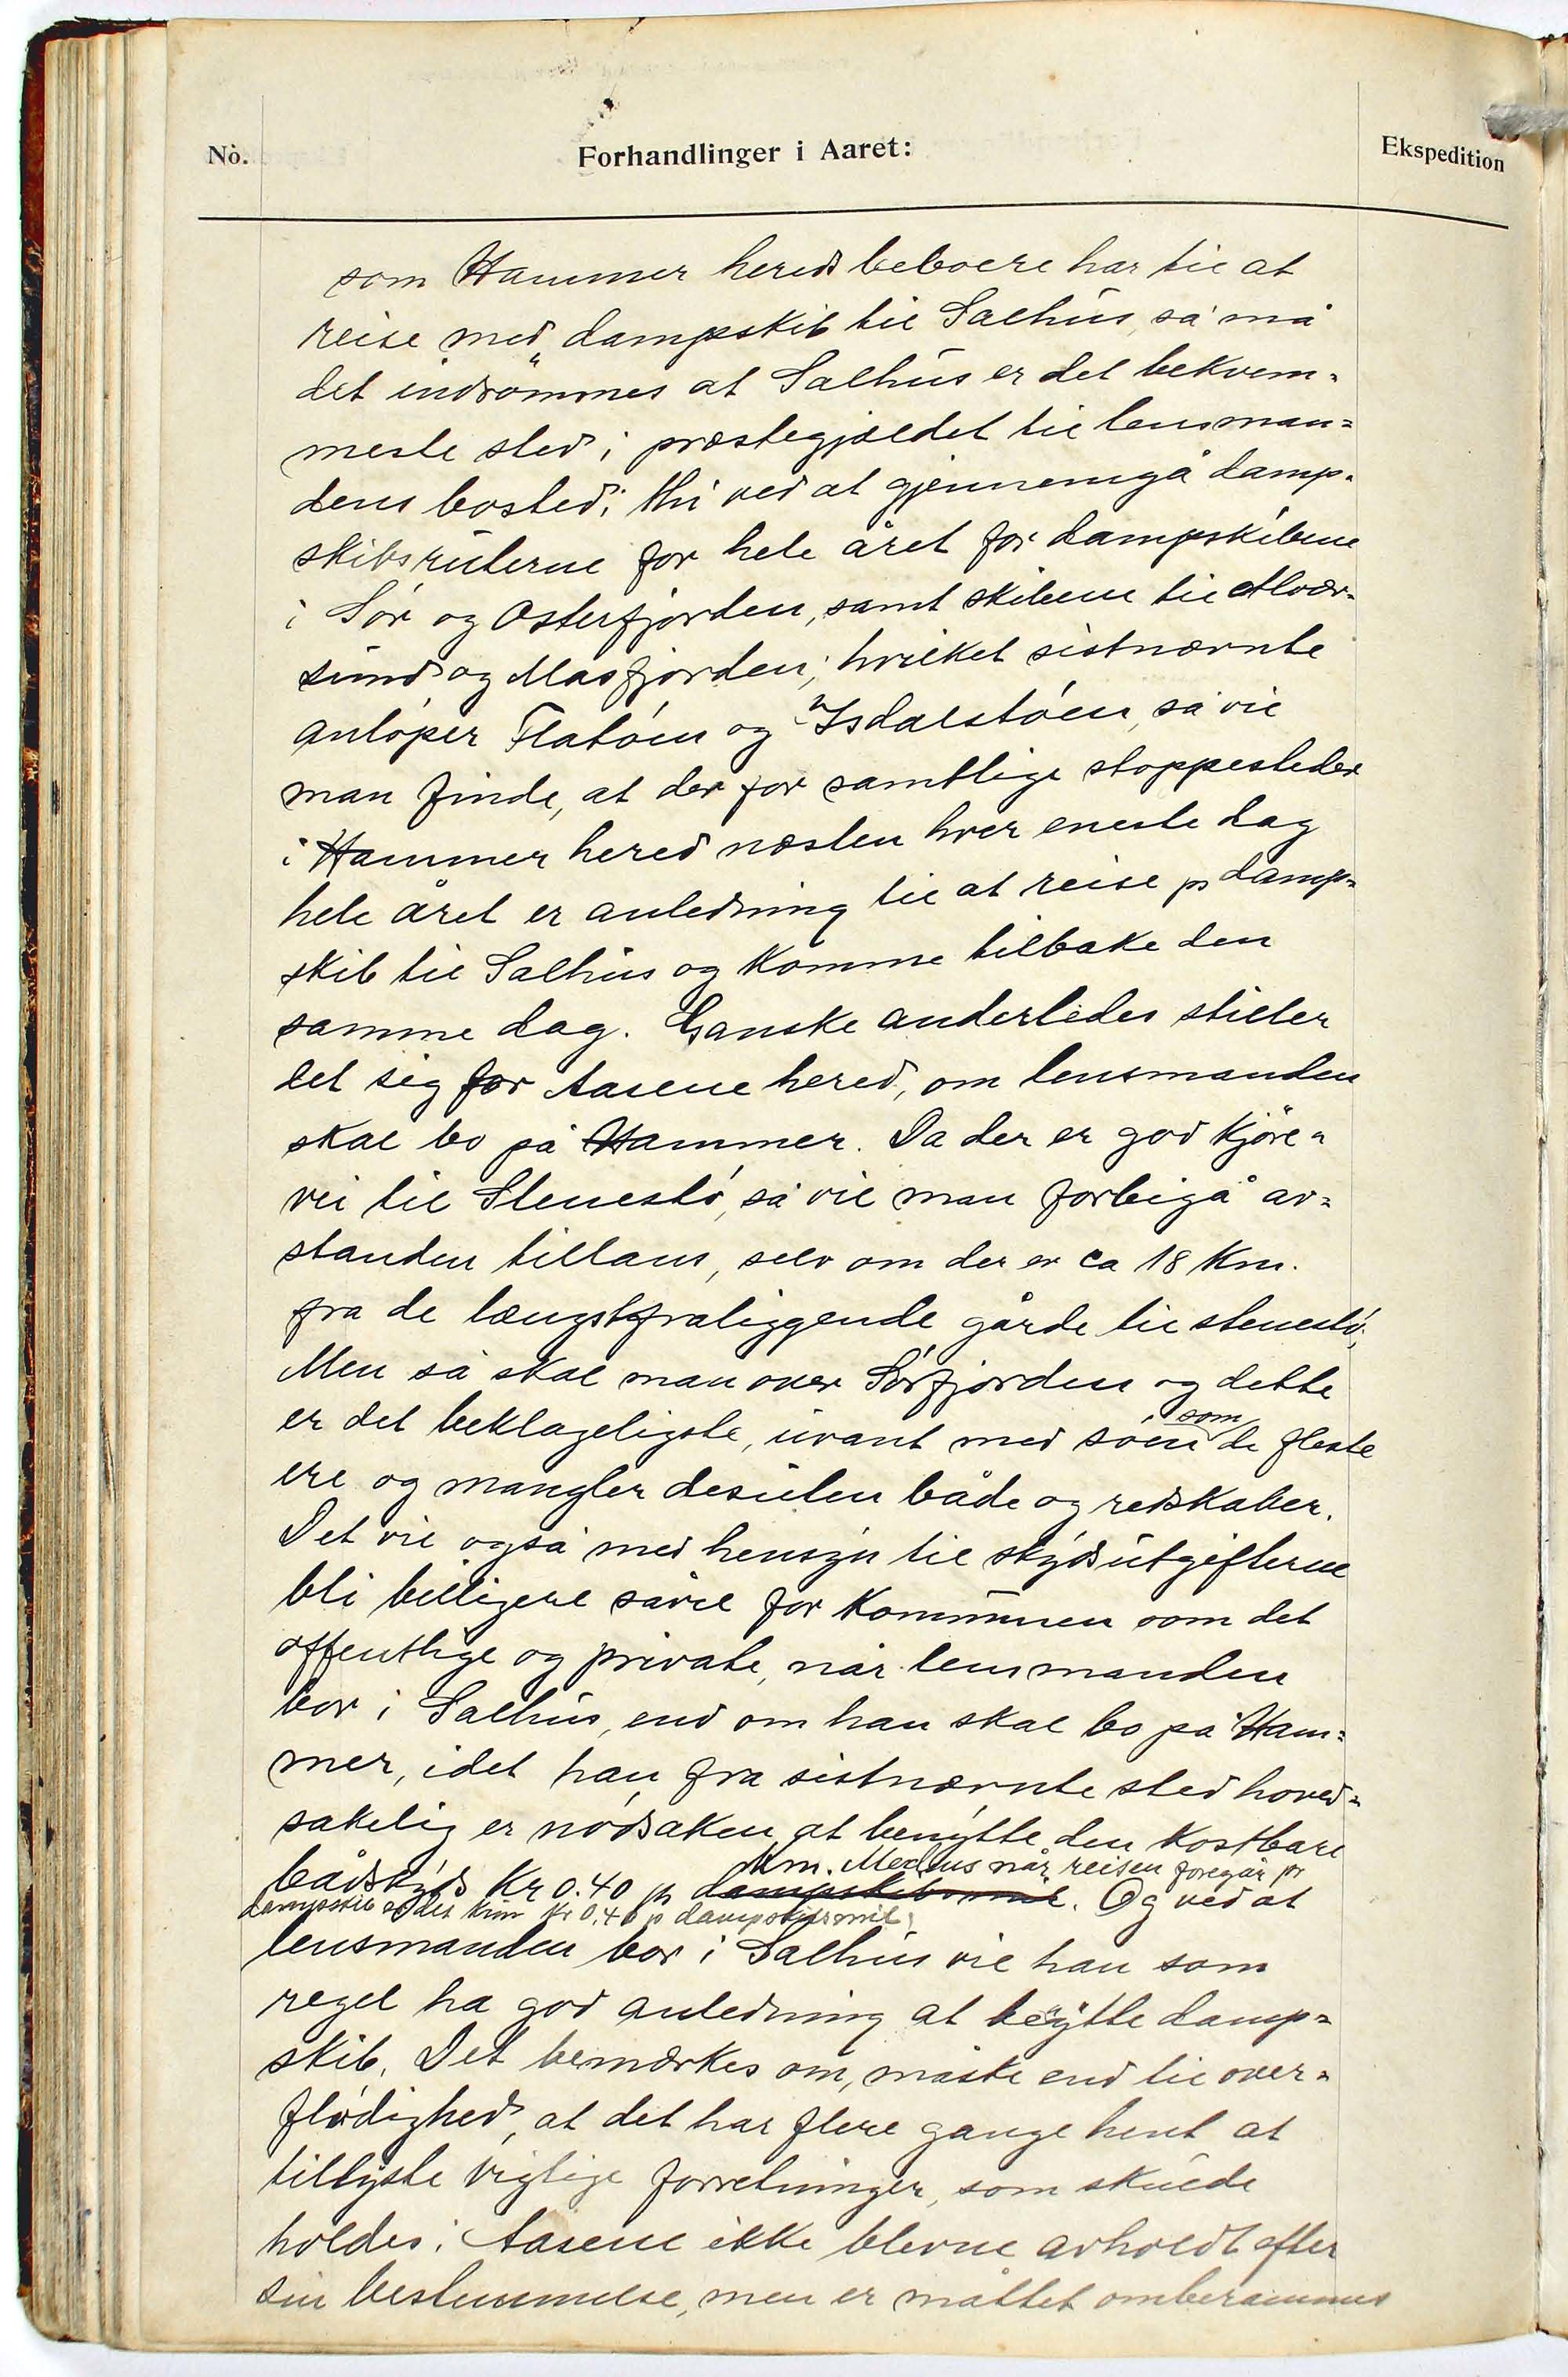 Nò.
Forhandlinger i Aaret:
Ekspedition
som Hammer hereds beboere har til at
reise med dampskib til Salhus, så må
det indrömmes at Salhus er det bekvem-
meste sted i præstegjældet til lensman=
dens bosted; thi ved at gjennemgå damp-
skibsruterne for hele året for dampskibene
i Sör og Osterfjorden, samt skibene til Alvær-
sund og Masfjorden, hvilket sistnævnte
anlöper Flatöen og Isdalstöen, så vil
man finde, at der for samtlige stoppesteder
i Hammer hered næsten hver eneste dag
hele året er anledning til at reise pr damp=
skib til Salhus og komme tilbake den
samme dag. Ganske anderledes stiller
det sig for Aasene hered, om lensmanden
skal bo på Hammer. Da der er god kjöre=
vei til Stenestö, så vil man forbigå av=
standen tillans, selv om der er ca 18 Km.
fra de længstfraliggende gårde til stenestö;
Men så skal man over Sörfjorden og dette
er det beklageligste, uvant med söen som de fleste
ere og mangler desuten både og redskaber.
Det vil også med hensyn til skydsutgifterne
bli billigere såvel for Kommunen som det
offentlige og private, når lensmanden
bor i Salhus, end om han skal bo på Ham=
mer, idet han fra sistnævnte sted hoved=
sakelig er nödsaken at benytte den kostbare
bådskyds Kr 0.40 pr dampskibsmil Km. Medens når reisen foregår pr
dampskib er det kun Kr 0,40 p dampskibsmil. Og ved at
lensmanden bor i Salhus vil han som
regel ha god anledning at benytte damp=
skib. Det bemærkes om, måske end til over=
flödighed, at det har flere gange hent at
tillyste vigtige forretninger, som skulde
holdes i Aasene ikke blevne avholdt efter
sin bestemmelse, men er måttet omberammes